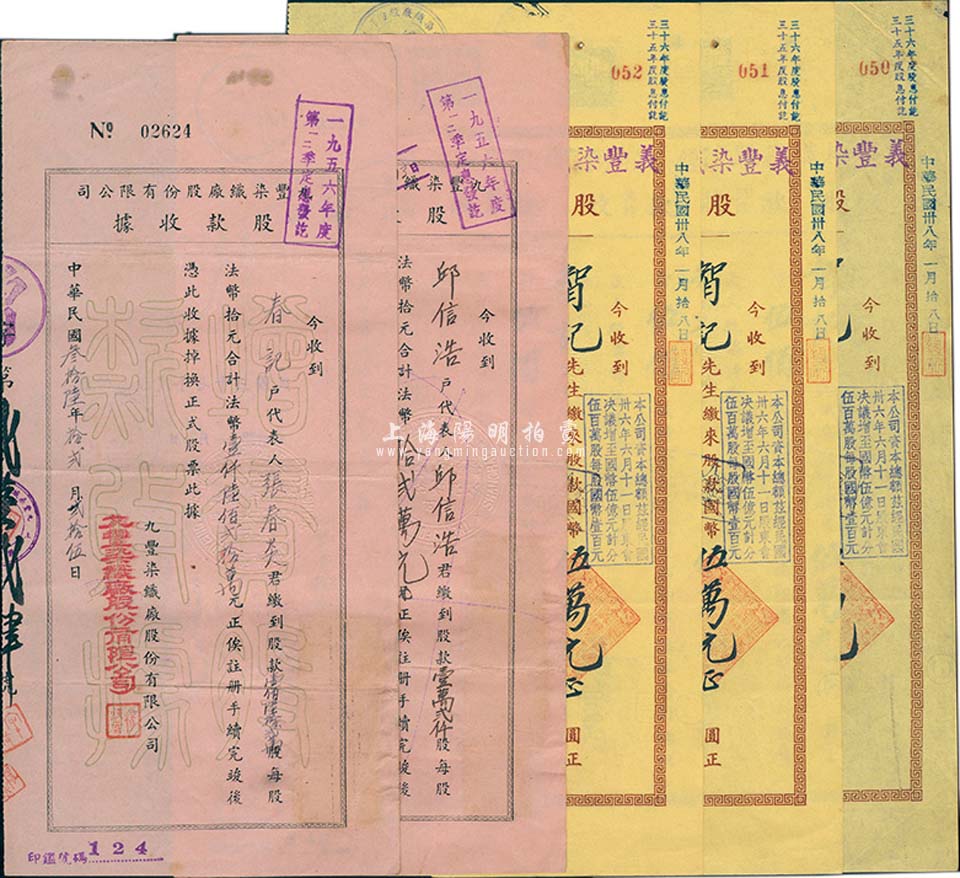 № 02624
一九五六年度
第一二季定息發訖
豐染織廠股份有限公司
股款收據
今收到
春記戶代表人張春英君繳到股款
股每股
法幣拾元合計法幣壹仟陸佰貳拾萬元正俟註册手續完竣後
憑此收據掉換正式股票此據
九豐染織廠股份有限公司
九豐染織廠股份有限公司
中華民國叁拾陸年拾貳月貳拾伍日
第
印鑑號碼 124
一九五六年度
第一二季定息發訖
九豐染織
股
今收到
邱信浩戶代表人邱信浩君繳到股款壹萬貳仟股每股
法幣拾元合計法幣拾貳萬元正俟註册手續完竣後
052
三十六年度股息付訖
三十五年度股息付訖
義豐染
股
中華民國卅八年一月拾八日
今收到
智記先生繳來股款國幣伍萬元正
圓正
本公司資本總額茲經民國
卅六年六月十一日股東會
決議增至國幣伍億元計分
伍百萬股每股國幣壹百元
051
三十六年度股息付訖
三十五年度股息付訖
義豐染
股
中華民國卅八年一月拾八日
今收到
智記先生繳來股款國幣伍萬元正
圓正
本公司資本總額茲經民國
卅六年六月十一日股東會
決議增至國幣伍億元計分
伍百萬股每股國幣壹百元
050
三十六年度股息付訖
三十五年度股息付訖
義豐染
股
中華民國卅八年一月拾八日
今收到
記先生
圓正
本公司資本總額茲經民國
卅六年六月十一日股東會
決議增至國幣伍億元計分
伍百萬股每股國幣壹百元
上海陽明拍賣
www.yangmingauction.com